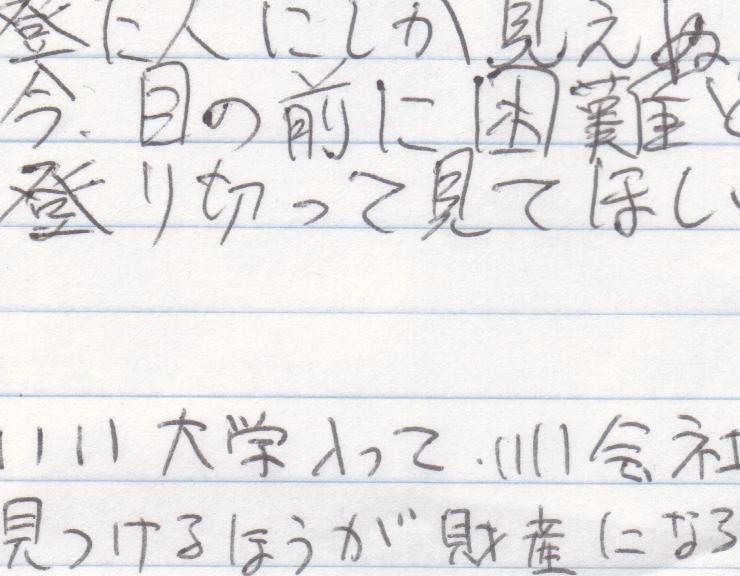 登た人にしか見えぬ
今、目の前に困難と
登り切って見てほしい
いい大学入って、いい会社
見つけるほうが財産になる